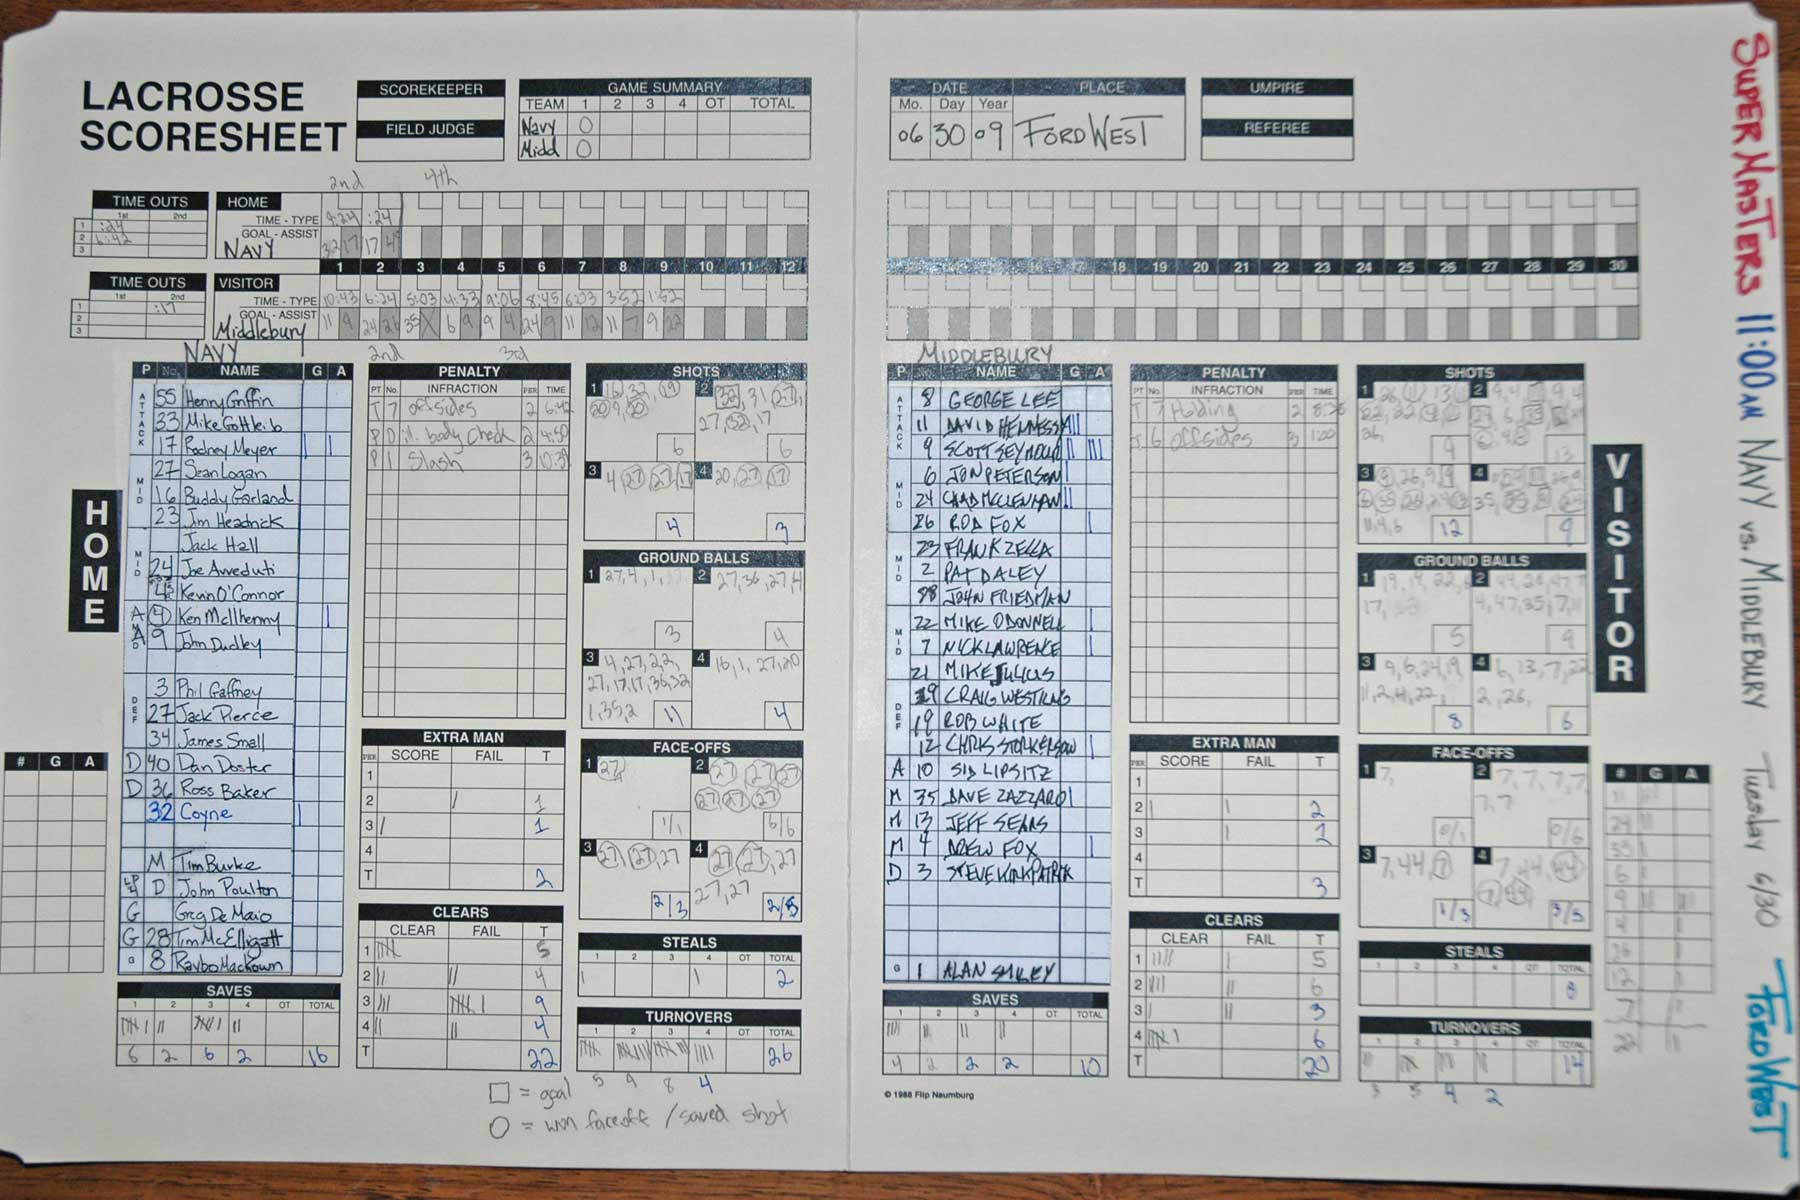 LACROSSE
SCORESHEET
SCOREKEEPER
FIELD JUDGE
GAME SUMMARY
TEAM 1 2 3 4 OT TOTAL
Navy 0
Midd 0
DATE PLACE
Mo. Day Year
06 30 09 FORD WEST
UMPIRE
REFEREE
SUPER MASTERS 11:00 AM NAVY vs. MIDDLEBURY Tuesday 6/30 FORD WEST
2nd 4th
TIME OUTS
1st 2nd
1 :24
2 6:42
3
HOME
TIME - TYPE 9:24 :24
GOAL - ASSIST
NAVY 32 17 17
1 2 3 4 5 6 7 8 9 10 11 12
16 17 18 19 20 21 22 23 24 25 26 27 28 29 30
TIME OUTS
1st 2nd
1 :17
2
3
VISITOR
TIME - TYPE 10:43 6:24 5:03 4:33 9:06 8:45 6:03 3:52 1:52
GOAL - ASSIST
Middlebury 11 9 24 26 35 X 6 9 9 4 24 9 11 12 11 7 9 22
HOME
NAVY
P No. NAME G A
ATTACK
55 Henry Griffin
33 Mike Gottleib
17 Rodney Meyer
MID
27 Sean Logan
16 Buddy Garland
23 Jim Headrick
MID
Jack Hall
24 Joe Avveduti
Kevin O'Connor
A 4 Ken McIlhenny
9 John Dudley
DEF
3 Phil Gaffney
27 Jack Pierce
34 James Small
D 40 Dan Doster
D 36 Ross Baker
32 Coyne
M Tim Burke
D John Poulton
G Greg De Maio
G 28 Tim McElligatt
G 8 Raybo Mackown
# G A
SAVES
1 2 3 4 OT TOTAL
6 2 6 2 16
2nd 3rd
PENALTY
PT No. INFRACTION PER TIME
T 7 offsides 2 6:42
P 0 ill. body check 2 4:50
P 1 Slash 3 10:39
EXTRA MAN
PER SCORE FAIL T
1
2 1
3 1
4
T 2
CLEARS
CLEAR FAIL T
1 5
2 4
3 9
4 4
T 22
SHOTS
1 6
2 6
3 4, 27, 27, 17 4
4 20, 27, 17 3
GROUND BALLS
1 27, 4, 1, 3
2 27, 36, 27, 4 4
3 4, 27, 22,
27, 17, 17, 36, 32
1, 35, 2 11
4 16, 1, 27, 20 4
FACE-OFFS
1 27 1/1
2 27 27 27
27 27 27 6/6
3 27, 27, 27 2/3
4 27, 27, 27
27, 27 2/5
STEALS
1 2 3 4 OT TOTAL
2
TURNOVERS
1 2 3 4 OT TOTAL
26
5 9 8 4
□ = goal
○ = won faceoff / saved shot
VISITOR
MIDDLEBURY
P No. NAME G A
ATTACK
8 GEORGE LEE
11 DAVID HENNESSY
9 SCOTT SEYMOUR
MID
6 JON PETERSON
24 CHAD MCCLENNAN
26 ROD FOX
MID
23 FRANK ZELLA
2 PAT DALEY
88 JOHN FRIEDMAN
MID
22 MIKE ODONNELL
7 NICK LAWRENCE
21 MIKE JULIUS
DEF
CRAIG WESTLING
19 ROB WHITE
12 CHRIS STORKERSON
A 10 SID LIPSITZ
M 35 DAVE ZAZZARO
M 13 JEFF SEARS
M 4 DREW FOX
D 3 STEVE KIRKPATRIK
G 1 ALAN SMILEY
SAVES
1 2 3 4 OT TOTAL
4 2 2 2 10
© 1988 Flip Naumburg
PENALTY
PT No. INFRACTION PER TIME
T 7 Holding 2
T 6 offsides 3 1:20
EXTRA MAN
PER SCORE FAIL T
1
2 2
3
4
T 3
CLEARS
CLEAR FAIL T
1 5
2 6
3 3
4 6
T 20
SHOTS
1 9
2 13
3 12
4 9
GROUND BALLS
1 5
2 9
3 9, 6, 24, 19
11, 2, 4, 22, 8
4 6, 13, 7, 22
2, 26, 6
FACE-OFFS
1 7, 0/1
2 7, 7, 7, 7,
7, 7 0/6
3 7, 44, 7 1/3
4 7, 44, 44
3/5
STEALS
1 2 3 4 OT TOTAL
8
TURNOVERS
1 2 3 4 OT TOTAL
14
3 5 4 2
# G A